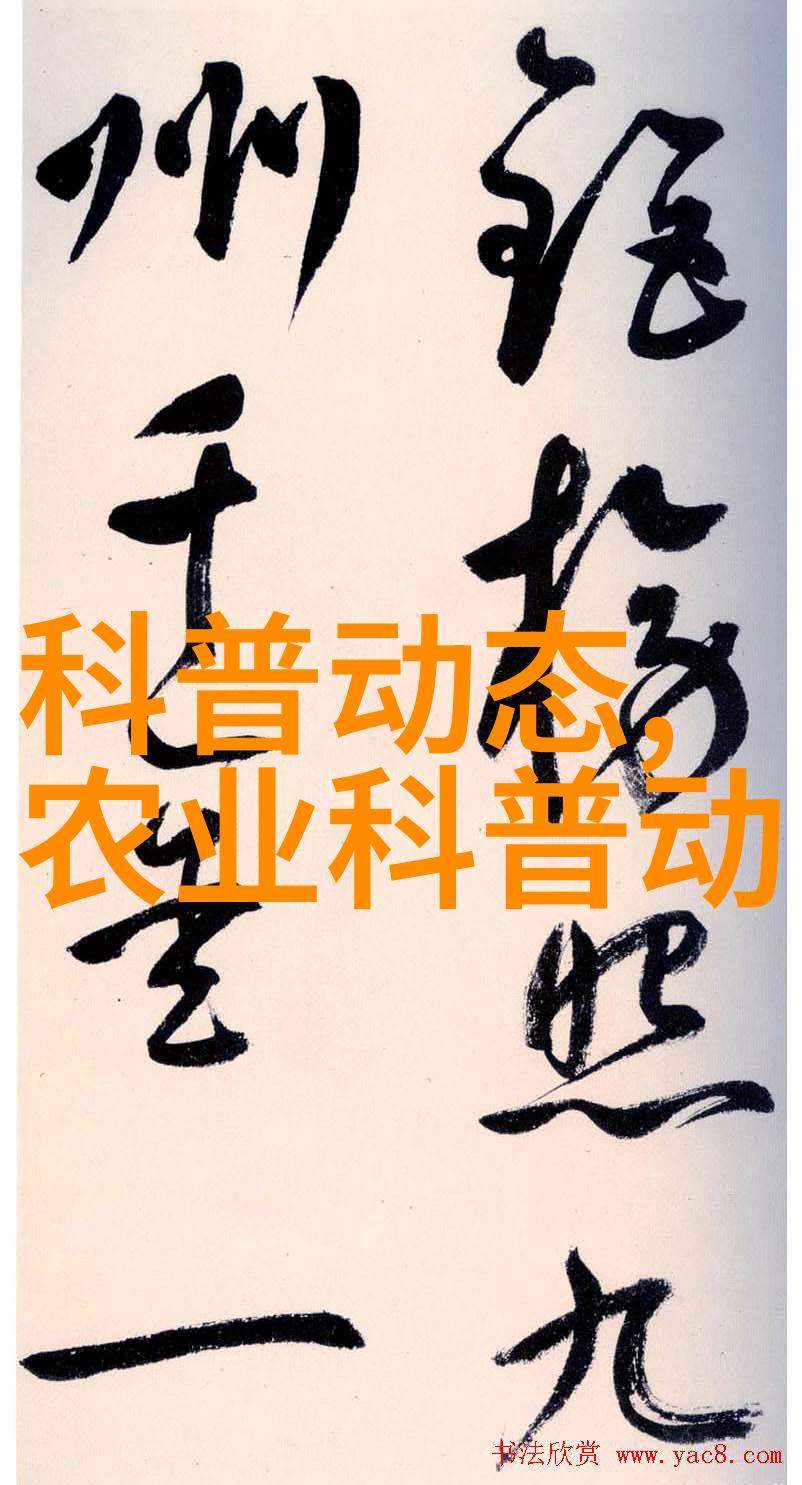 照九
州千
一
科普动态,
农业科普动
书法欣赏 www.yac8.com